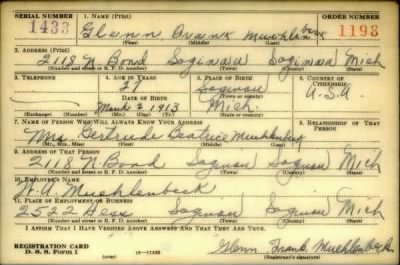 SERIAL NUMBER 1. NAME (Print) ORDER NUMBER
1433 Glenn Muehlenbeck 1193
(First) (Middle) (Last)
2. ADDRESS (Print)
2118 N. Bond Saginaw Saginaw Mich
(Number and street or R. F. D. number) (Town) (County) (State)
3. TELEPHONE 4. AGE IN YEARS 5. PLACE OF BIRTH 6. COUNTRY OF CITIZENSHIP
27 Saginaw
DATE OF BIRTH U.S.A
Mich.
(Exchange) (Number) (Mo.) (Day) (Yr.)
7. NAME OF PERSON WHO WILL ALWAYS KNOW YOUR ADDRESS 8. RELATIONSHIP OF THAT PERSON
Mrs. Gertrude Beatrice
(Mr., Mrs., Miss) (First) (Middle) (Last)
9. ADDRESS OF THAT PERSON
2118 N. Bond Saginaw Saginaw Mich
(Number and street or R. F. D. number) (Town) (County) (State)
10. EMPLOYER'S NAME
W. A. Muehlenbeck
11. PLACE OF EMPLOYMENT OR BUSINESS
2522 Hess Saginaw Saginaw Mich
(Number and street or R. F. D. number) (Town) (County) (State)
I AFFIRM THAT I HAVE VERIFIED ABOVE ANSWERS AND THAT THEY ARE TRUE.
REGISTRATION CARD
D. S. S. Form 1 (over) Glenn Frank Muehlenbeck
(Registrant's signature)